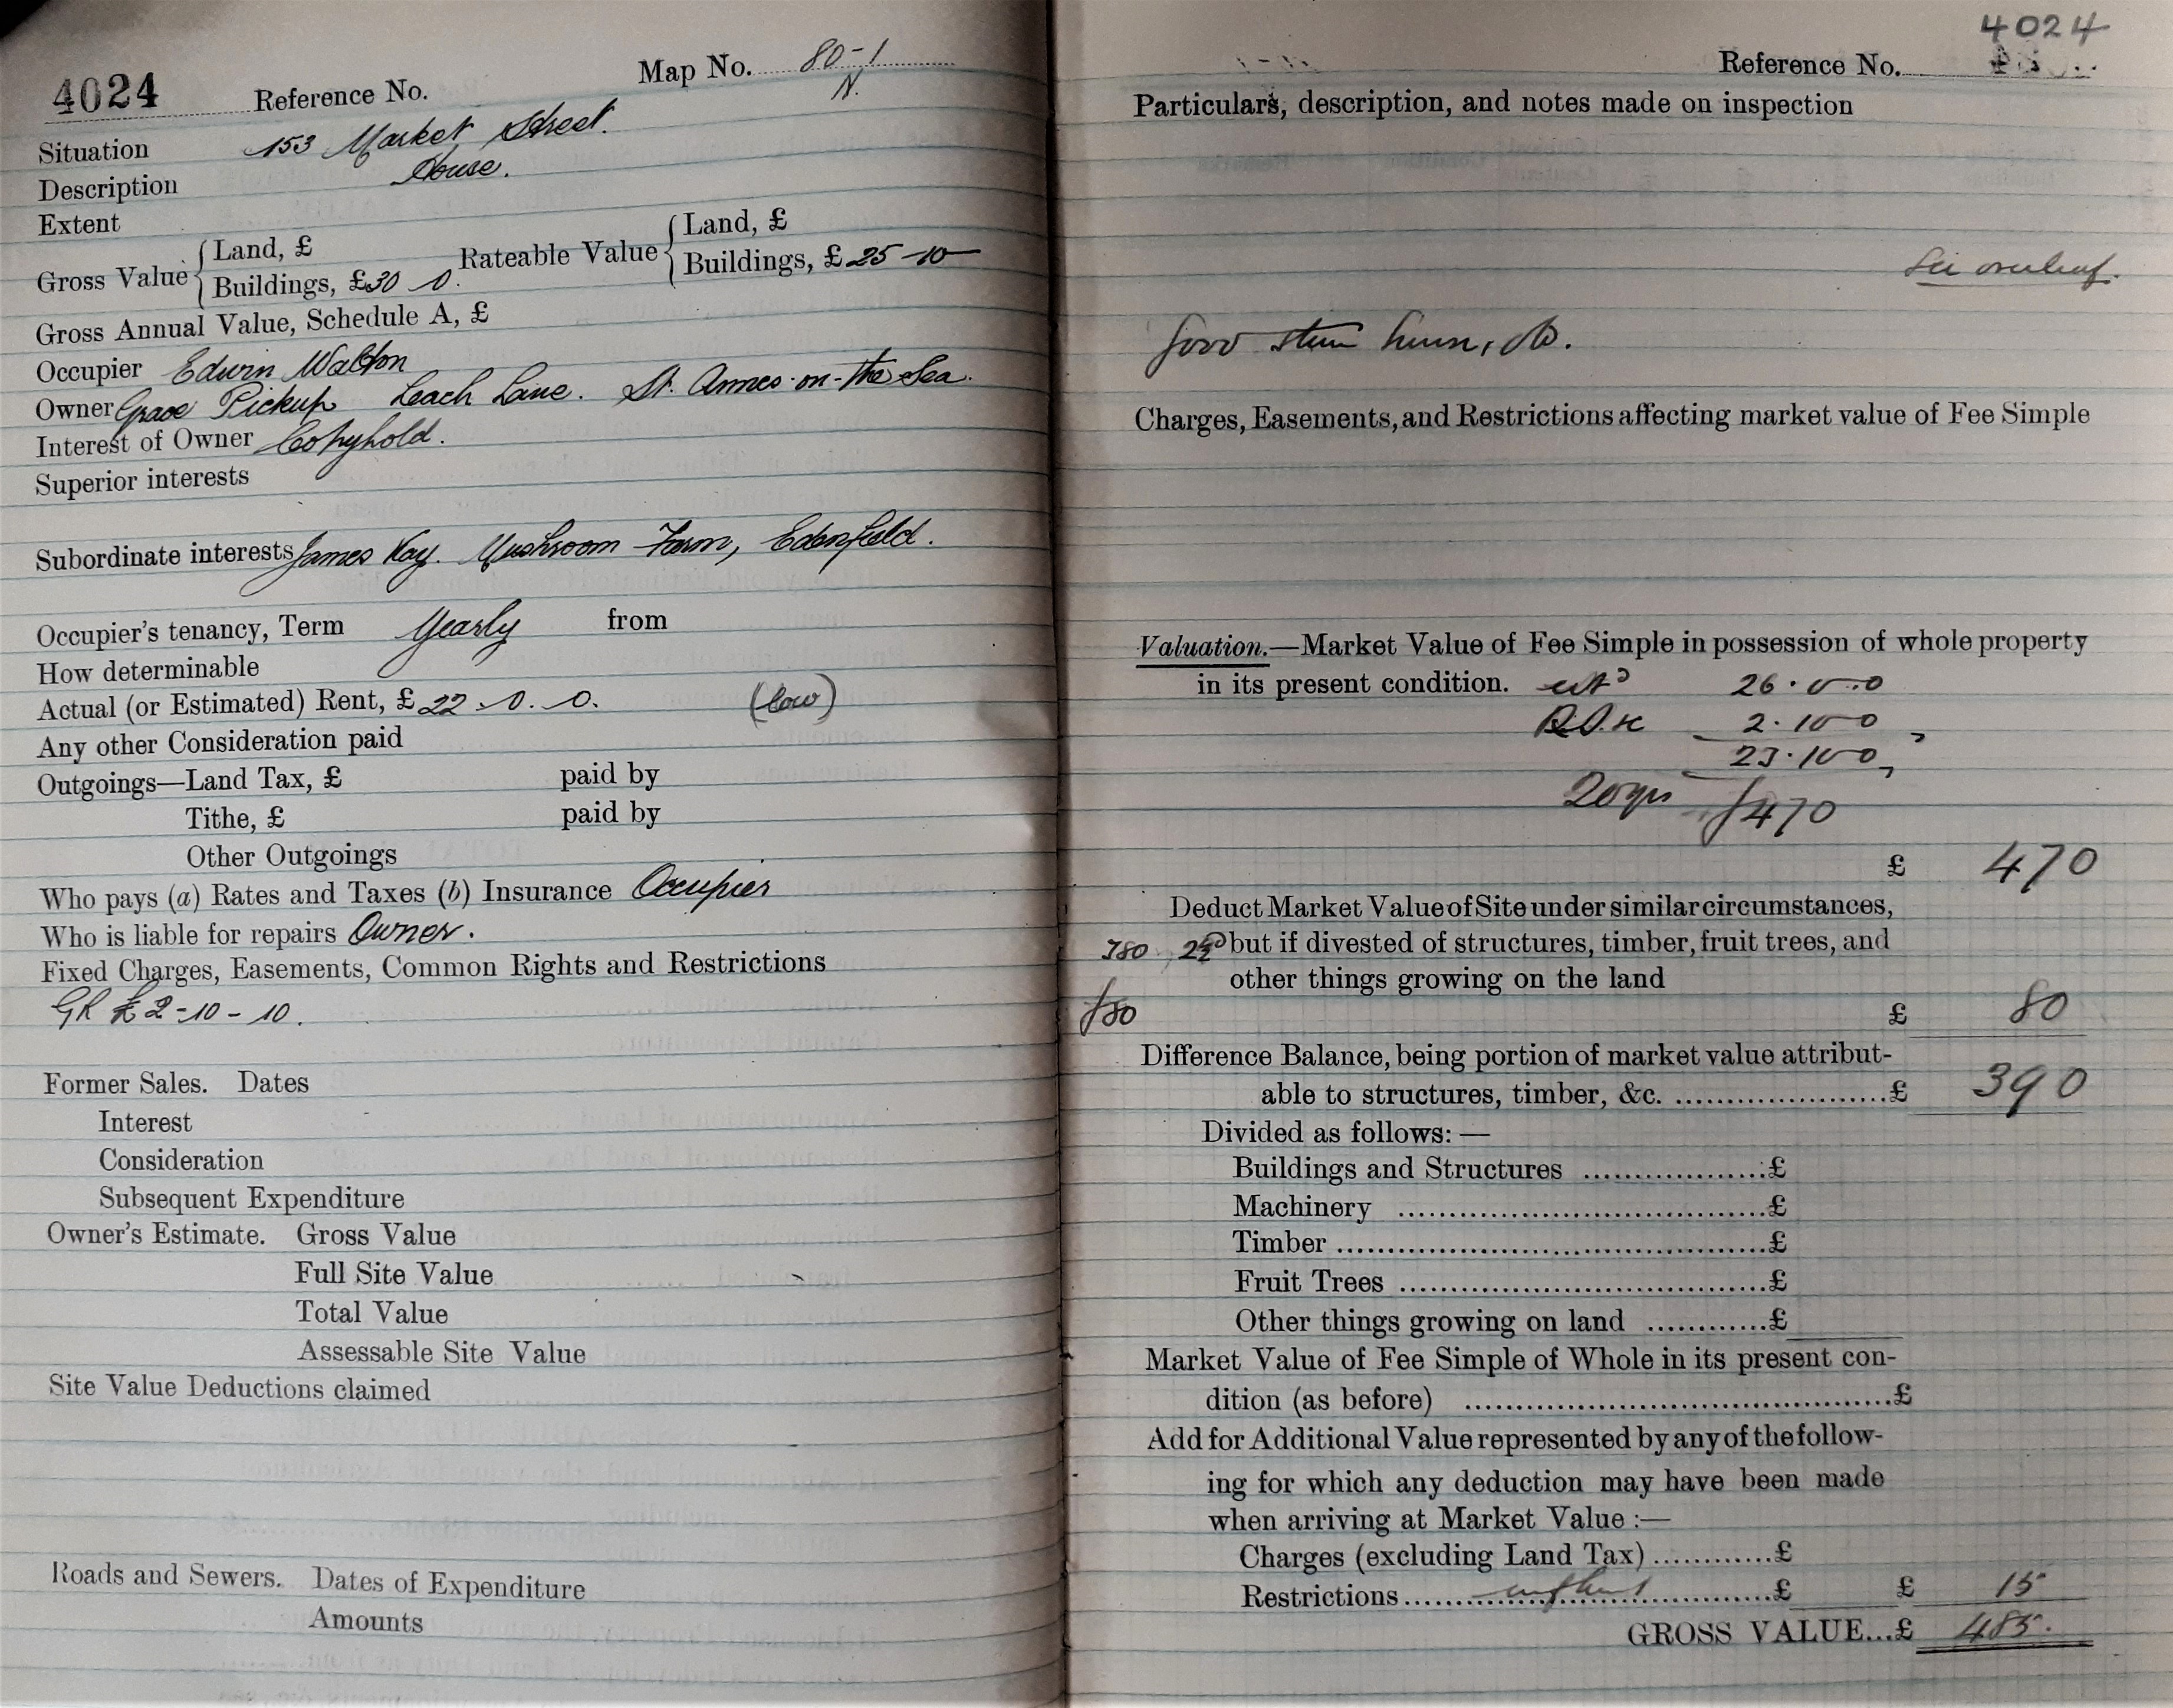 4024 Reference No. Map No. 80-1
N.
Situation 153 Market Street.
Description House.
Extent
Gross Value { Land, £
Buildings, £30 0. Rateable Value { Land, £
Buildings, £25-10-
Gross Annual Value, Schedule A, £
Occupier Edwin Walton
Owner Grace Pickup Leach Lane. St. Annes-on-the Sea.
Interest of Owner Copyhold.
Superior interests
Subordinate interests James Kay. Mushroom Farm, Edenfield.
Occupier's tenancy, Term Yearly from
How determinable
Actual (or Estimated) Rent, £22.0.0. (low)
Any other Consideration paid
Outgoings—Land Tax, £ paid by
Tithe, £ paid by
Other Outgoings
Who pays (a) Rates and Taxes (b) Insurance Occupier
Who is liable for repairs Owner.
Fixed Charges, Easements, Common Rights and Restrictions
GR £2-10-10.
Former Sales. Dates
Interest
Consideration
Subsequent Expenditure
Owner's Estimate. Gross Value
Full Site Value
Total Value
Assessable Site Value
Site Value Deductions claimed
Roads and Sewers. Dates of Expenditure
Amounts
4024
Reference No.
Particulars, description, and notes made on inspection
See overleaf.
Good stone house,
Charges, Easements, and Restrictions affecting market value of Fee Simple
Valuation.—Market Value of Fee Simple in possession of whole property
in its present condition. 26.0.0
2.10 0
23.10 0
20 yrs £470
£ 470
Deduct Market Value of Site under similar circumstances,
380 but if divested of structures, timber, fruit trees, and
other things growing on the land
£80 £ 80
Difference Balance, being portion of market value attribut-
able to structures, timber, &c. ....................£ 390
Divided as follows:—
Buildings and Structures ................£
Machinery ................................£
Timber .....................................£
Fruit Trees ................................£
Other things growing on land ............£
Market Value of Fee Simple of Whole in its present con-
dition (as before) .....................................£
Add for Additional Value represented by any of the follow-
ing for which any deduction may have been made
when arriving at Market Value:—
Charges (excluding Land Tax) ............£
Restrictions ................................£ £ 15
GROSS VALUE...£ 485.